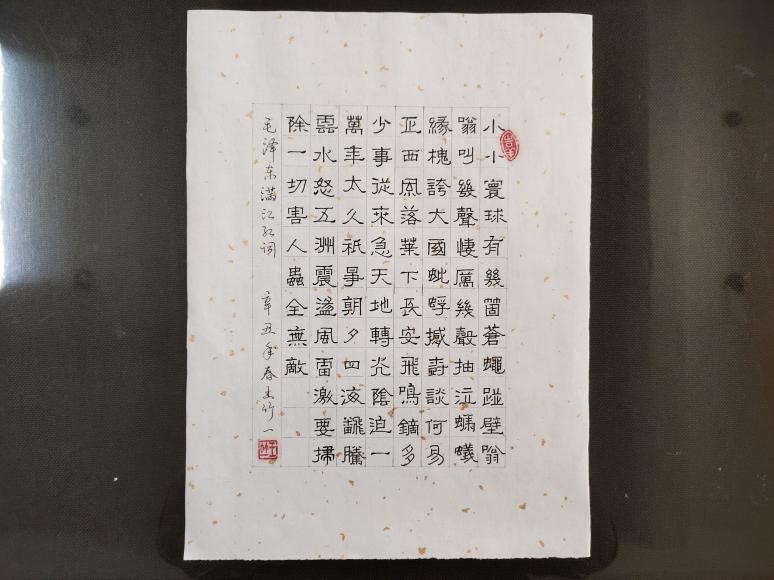 小小寰球有幾箇蒼蠅踫壁嗡
嗡叫幾聲悽厲幾聲抽泣螞蟻
緣槐誇大國蚍蜉撼樹談何易
正西風落葉下長安飛鳴鏑多
少事從來急天地轉光陰迫一
萬年太久祇爭朝夕四海翻騰
雲水怒五洲震盪風雷激要掃
除一切害人蟲全無敵
毛泽东满江红词 辛丑年春 竹一